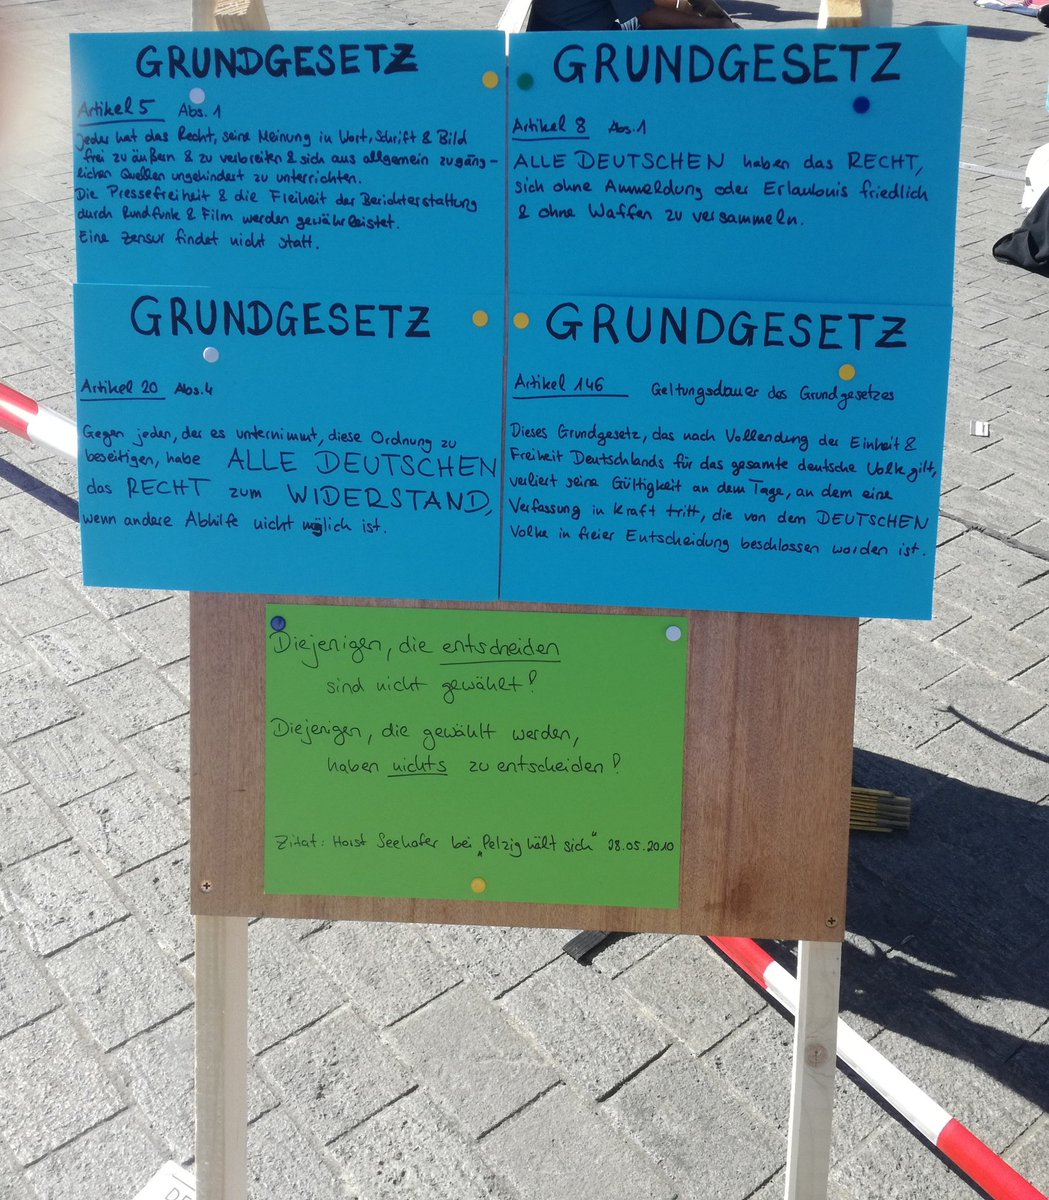 GRUNDGESETZ
Artikel 5 Abs. 1
Jeder hat das Recht, seine Meinung in Wort, Schrift & Bild
frei zu äußern & zu verbreiten & sich aus allgemein zugäng-
lichen Quellen ungehindert zu unterrichten.
Die Pressefreiheit & die Freiheit der Berichterstattung
durch Rundfunk & Film werden gewährleistet.
Eine Zensur findet nicht statt.
GRUNDGESETZ
Artikel 8 Abs. 1
ALLE DEUTSCHEN haben das RECHT,
sich ohne Anmeldung oder Erlaubnis friedlich
& ohne Waffen zu versammeln.
GRUNDGESETZ
Artikel 20 Abs. 4
Gegen jeden, der es unternimmt, diese Ordnung zu
beseitigen, habe ALLE DEUTSCHEN
das RECHT zum WIDERSTAND,
wenn andere Abhilfe nicht möglich ist.
GRUNDGESETZ
Artikel 146 Geltungsdauer des Grundgesetzes
Dieses Grundgesetz, das nach Vollendung der Einheit &
Freiheit Deutschlands für das gesamte deutsche Volk gilt,
verliert seine Gültigkeit an dem Tage, an dem eine
Verfassung in Kraft tritt, die von dem DEUTSCHEN
Volke in freier Entscheidung beschlossen worden ist.
Diejenigen, die entscheiden
sind nicht gewählt!
Diejenigen, die gewählt werden,
haben nichts zu entscheiden!
Zitat: Horst Seehofer bei „Pelzig hält sich“ 28.05.2010